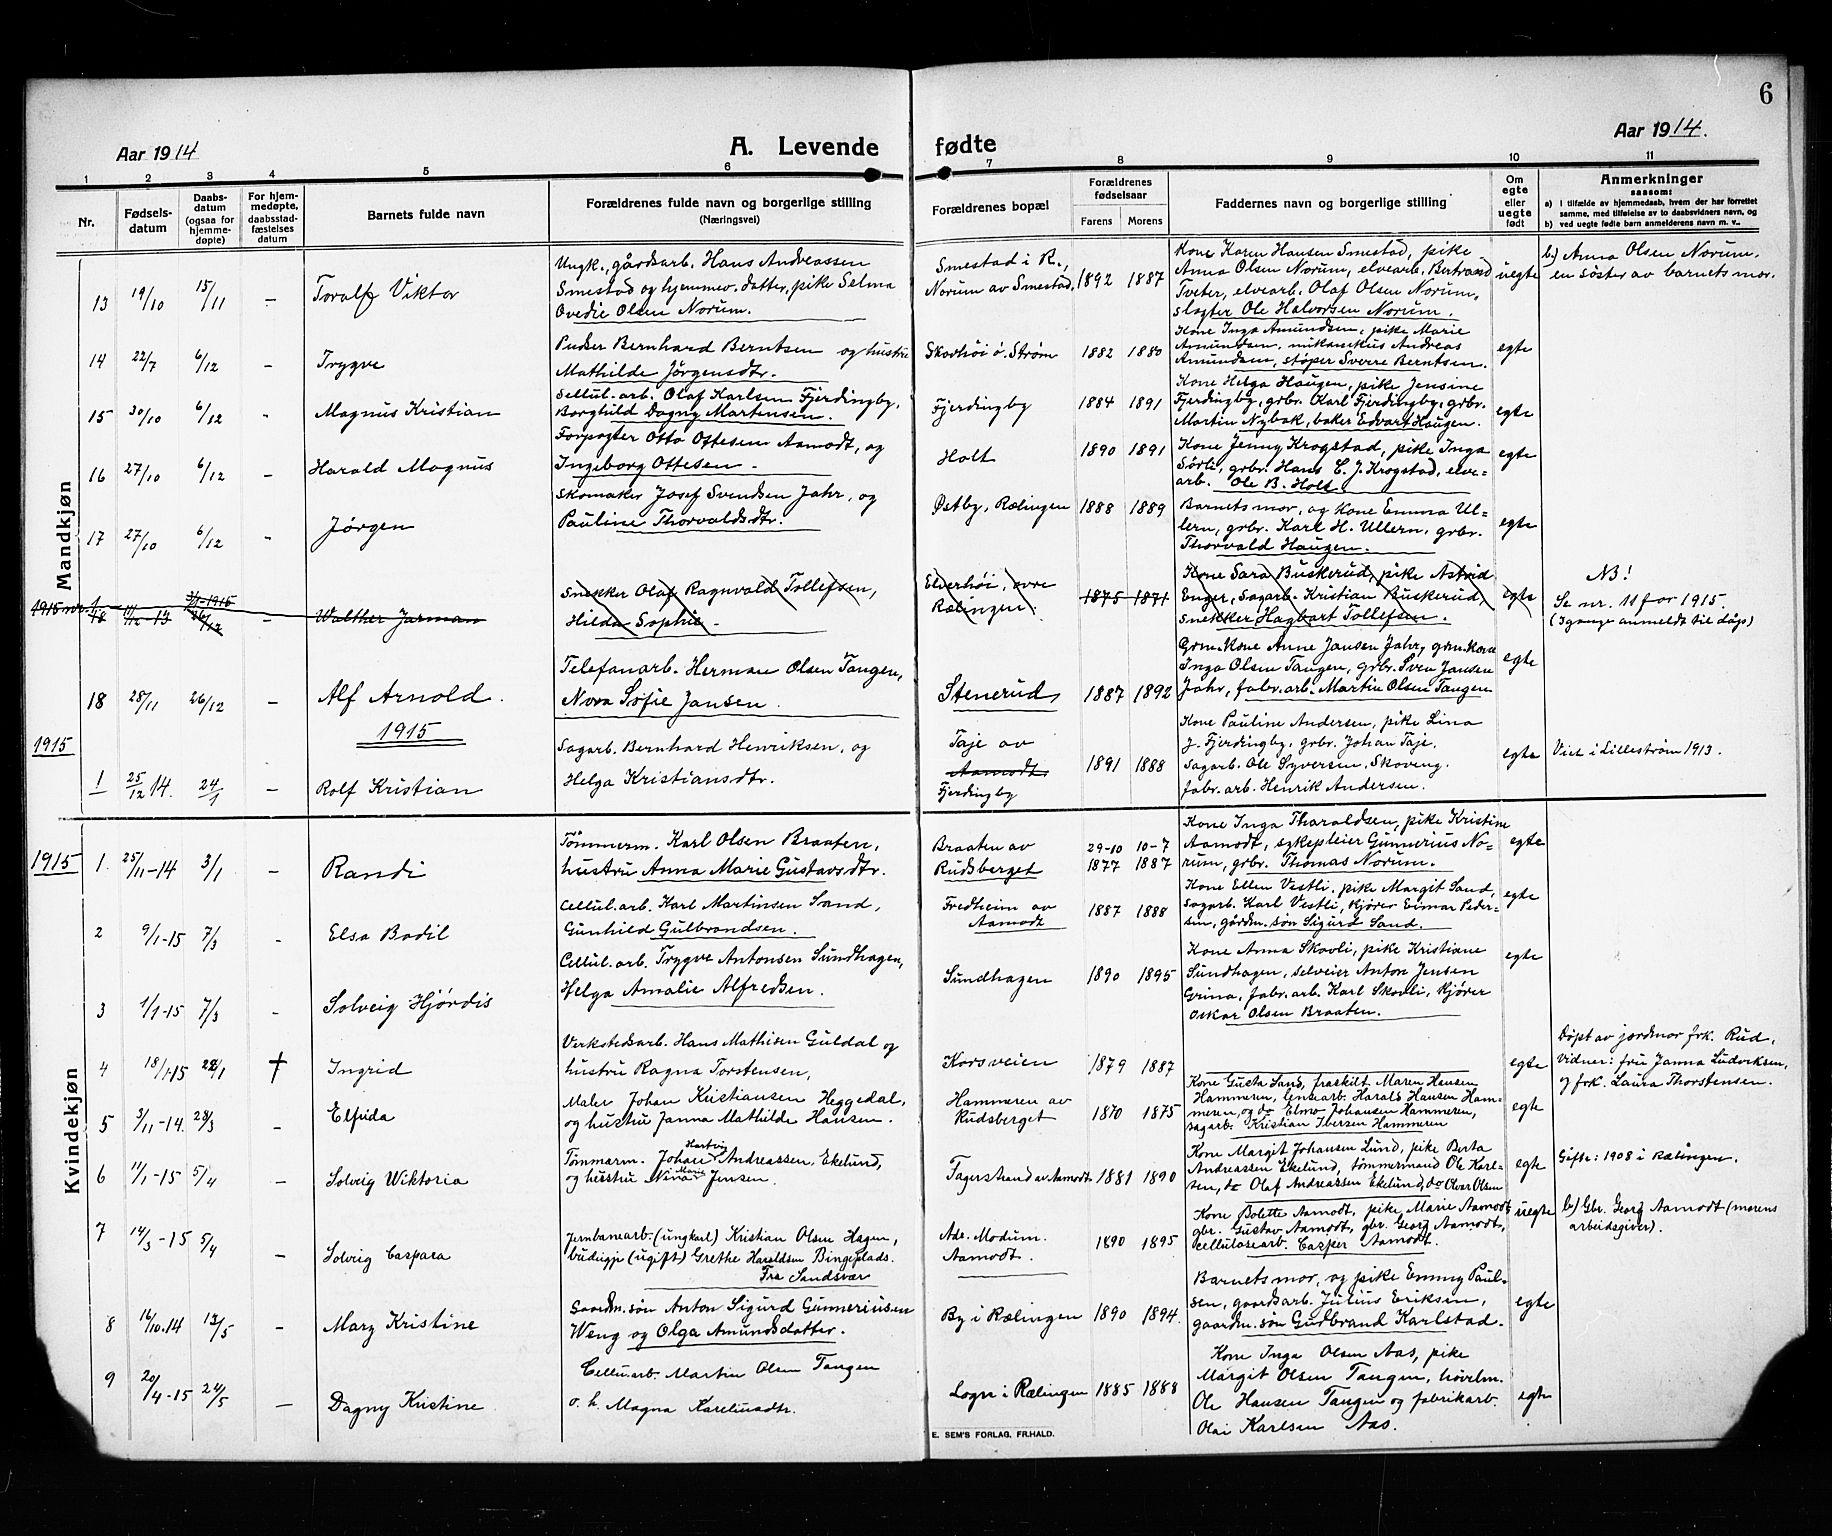 6
Aar 1914
A. Levende fødte
Aar 1914.
1 2 3 4 5 6 7 8 9 10 11
Nr.
Fødsels-
datum
Daabs-
datum
(ogsaa for
hjemme-
døpte)
For hjem-
medøpte,
daabsstad-
fæstelses
datum
Barnets fulde navn
Forældrenes fulde navn og borgerlige stilling
(Næringsvei)
Forældrenes bopæl
Forældrenes
fødselsaar
Farens Morens
Faddernes navn og borgerlige stilling
Om
egte
eller
uegte
født
Anmerkninger
saasom:
a) I tilfælde av hjemmedaab, hvem der har forrettet
samme, med tilføielse av to daabsvidners navn, og
b) ved uegte fødte barn anmelderens navn m. v..
Mandkjøn
13 19/10 15/11 - Toralf Viktor
Ungk., gårdsarb. Hans Andreassen
Smestad og hjemmev. datter, pike Selma
Ovedie Olsen Norum.
Smestad i R.,
Norum av Smestad.
1892 1887
Kone Karen Hansen Smestad, pike
Anna Olsen Norum, elvearb. Bertrand
Tveter, elvearb. Olaf Olsen Norum,
slagter Ole Halvorsen Norum.
uegte
b.) Anna Olsen Norum,
en søster av barnets mor.
14 22/7 6/12 - Trygve
Pudser Bernhard Berntsen og hustru
Mathilde Jörgensdtr.
Skovhöi ö. Ström
1882 1880
Kone Inga Amundsen, pike Marie
Amundsen, mikanikus Andreas
Amundsen, støper Sverre Berntsen.
egte
15 30/10 6/12 - Magnus Kristian
Sellul. arb. Olaf Karlsen Fjerdingby,
Borghild Dagny Martensen.
Fjerdingby
1884 1891
Kone Helga Haugen, pike Jensine
Fjerdingby, grbr. Karl Fjerdingby, grbr.
Martin Nybak, baker Edvart Haugen.
egte
16 27/10 6/12 - Harald Magnus
Forpagter Otto Ottesen Aamodt, og
Ingeborg Ottesen.
Holt
1890 1891
Kone Jenny Krogstad, pike Inga
Sörli, grbr. Hans C. J. Krogstad, elve=
arb. Ole B. Holt.
egte
17 27/10 6/12 - Jörgen
Skomaker Josef Svendsen Jahr, og
Pauline Thorvaldsdtr.
Östby, Rælingen
1888 1889
Barnets mor, og kone Emma Ul-
lern, grbr. Karl H. Ullern, grbr.
Thorvald Haugen.
egte
1915 nr. 1 18 11/12-13 3/1-1915 26/12 - Walther Jarman
Snekker Olaf Ragnvald Tollefsen,
Hilda Sophie.
Elverhöi, övre
Rælingen.
1875 1871
Kone Sara Buskerud, pike Astrid
Enger, Sagarb. Kristian Buskerud,
Snekker Hagbart Tollefsen.
egte
NB!
Se nr. 11 for 1915.
(2 gange anmeldt til dåp)
18 28/11 26/12 - Alf Arnold.
Telefonarb. Herman Olsen Tangen,
Nora Sofie Jansen.
Stenerud,
1887 1892
Grm. Kone Anne Jansen Jahr, grm. kone
Inga Olsen Tangen, grbr. Sven Jansen
Jahr, fabr. arb. Martin Olsen Tangen
egte
1915
1915
1 25/12 14. 24/1 - Rolf Kristian
Sagarb. Bernhard Henriksen, og
Helga Kristiansdtr.
Taje av
Aamodt.
Fjerdingby
1891 1888
Kone Pauline Andersen, pike Lina
J. Fjerdingby, grbr. Johan Taje.
Sagarb. Ole Syversen, Skoveng.
fabr. arb. Henrik Andersen.
egte
Viet i Lilleström 1913.
Kvindekjøn
1915
1. 25/11-14 3/1 - Randi
Tömmerm. Karl Olsen Braaten,
hustru Anna Marie Gustavsdtr.
Braaten av
Rudsberget
29-10 10-7
1877 1887
Kone Inga Tharaldsen, pike Kristine
Aamodt, sykepleier Gunnerius No=
rum, grbr. Thomas Norum.
egte
2 9/1-15 7/3 - Elsa Bodil
Cellul. arb. Karl Martinsen Sand,
Gunhild Gulbrandsen.
Fredheim av
Aamodt
1887 1888
Kone Ellen Vestli, pike Margit Sand,
Sagarb. Karl Vestli, kjörer Eimar Peder-
sen, gårdm. sön Sigurd Sand.
egte
3 1/1-15 7/3 - Solveig Hjördis
Cellul. arb. Trygve Antonsen Sundhagen,
Helga Amalie Alfredsen.
Sundhagen
1890 1895
Kone Anna Skovli, pike Kristiane
Sundhagen, selveier Anton Jensen
Grina, fabr. arb. Karl Skovli, kjörer
Oskar Olsen Braaten.
egte
4 18/1-15 /1 † Ingrid
Verkstedsarb. Hans Mathisen Guldal og
hustru Ragna Torstensen,
Korsveien
1879 1887
egte
Døpt av jordmor frk. Rud,
Vidner: fru Janna Ludviksen,
og frk. Laura Thorstensen.
5 3/11-14. 28/3 - Elfrida
Maler Johan Kristiansen Heggedal,
og hustru Janna Mathilde Hansen.
Hammeren av
Rudsberget
1870 1875
Kone Gusta Sand, fraskilt Maren Hansen
Hammeren, lensearb. Harald Hansen Ham-
meren, og do Elmo Johansen Hammeren,
sagarb. Kristian Ibersen Hammeren
egte
6 11/1-15 5/4 - Solveig Wiktoria
Tömmerm. Johan Hartvig Andreassen, Ekelund,
og hustru Nina Marie Jensen.
Fagerstrand av Aamodt
1881 1890
Kone Margit Johansen Lund, pike Berta
Andreassen Ekelund, tömmermand Ole Karl-
sen, do Olaf Andreassen Ekelund, do Oluer Olsen
egte
Gifte: 1908 i Rælingen.
7 14/3-15 5/4 - Solvig Caspara
Jernbanearb. (ungkarl) Kristian Olsen Hagen,
budeigje (ugift) Grethe Haraldsen Bingeplads.
Fra Sandsvær
Adr. Modum.
Aamodt.
1890 1895
Kone Bolette Aamodt, pike Marie Aamodt
gbr. Gustav Aamodt, gbr. Georg Aamodt,
cellulosearb. Casper Aamodt.
uegte
b) Gbr. Georg Aamodt (morens
arbeidsgiver).
8 16/10.14 13/5 - Mary Kristine
Gaardm. sön Anton Sigurd Gunneriusen
Weng og Olga Amundsdatter.
By i Rælingen
1890 1894.
Barnets mor, og pike Emmy Paul-
sen, gaardsarb. Julius Eriksen,
gaardm. sön Gudbrand Karlstad.
egte
9 20/4-15 24/5 - Dagny Kristine
Cellu. arb. Martin Olsen Tangen
o. h. Magna Kareliusdtr.
Logn i Rælingen
1885 1888
Kone Inga Olsen Aas, pike
Margit Olsen Tangen, hövlm.
Ole Hansen Tangen og fabrikarb.
Olai Karlsen Aas.
egte
E. SEM'S FORLAG, FR.HALD.